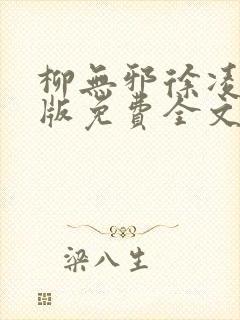 柳無邪徐凌
版免費全文
梁八生